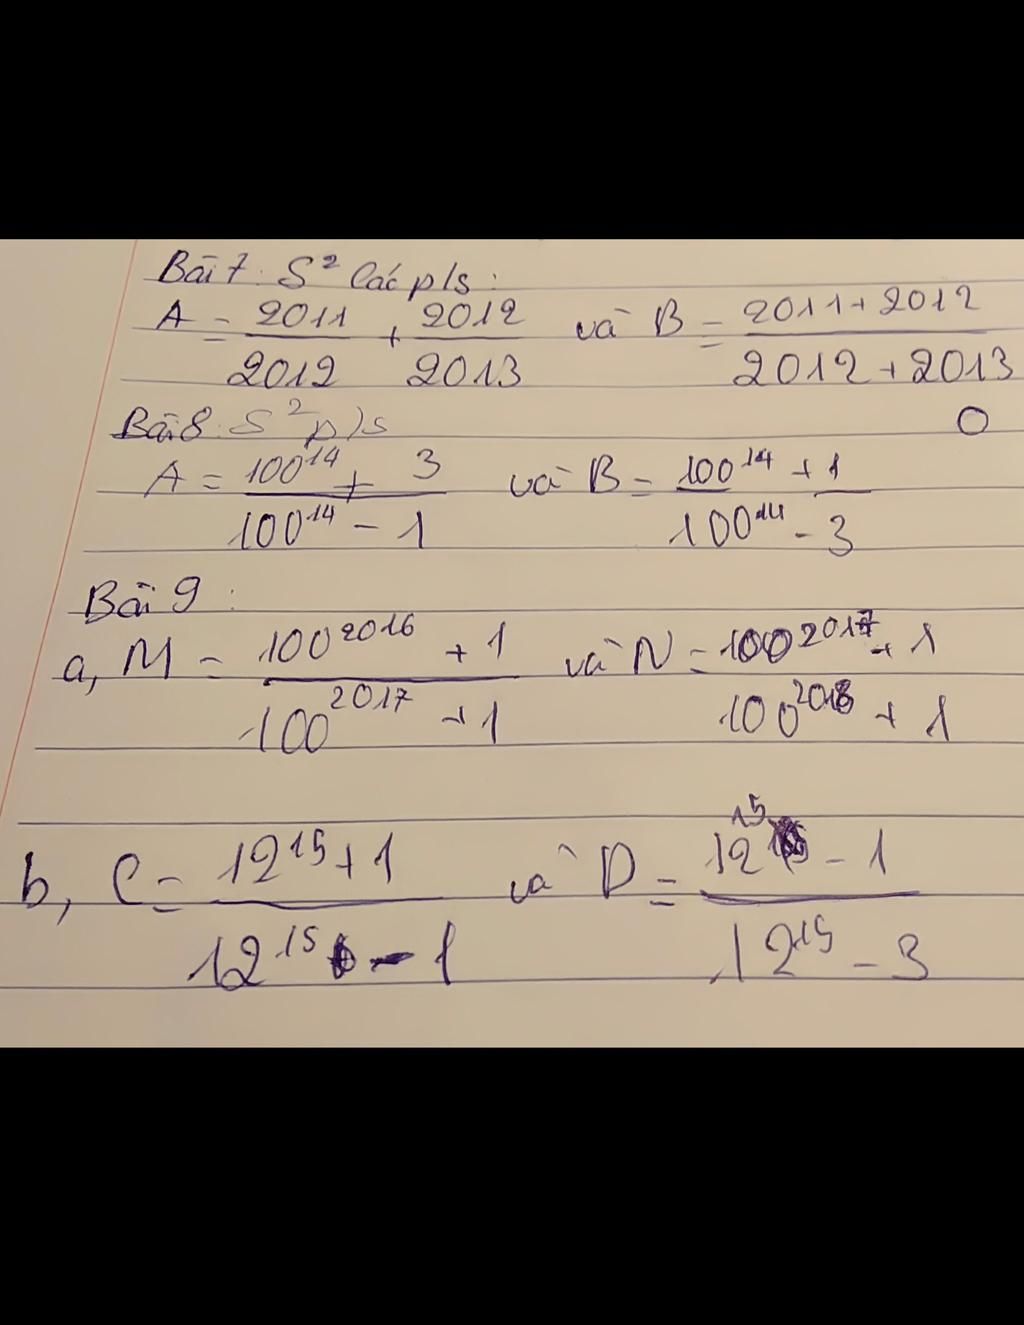 Bài 7: S² các p/s:
A = 2011/2012 + 2012/2013 và B = 2011+2012/2012+2013
Bài 8: S² p/s
A = 100¹⁴ + 3/100¹⁴ - 1 và B = 100¹⁴ + 1/100¹⁴ - 3
Bài 9:
a, M = 100²⁰¹⁶ + 1/100²⁰¹⁷ + 1 và N = 100²⁰¹⁷ + 1/100²⁰¹⁸ + 1
b, C = 12¹⁵ + 1/12¹⁵ - 1 và D = 12¹⁵ - 1/12¹⁵ - 3